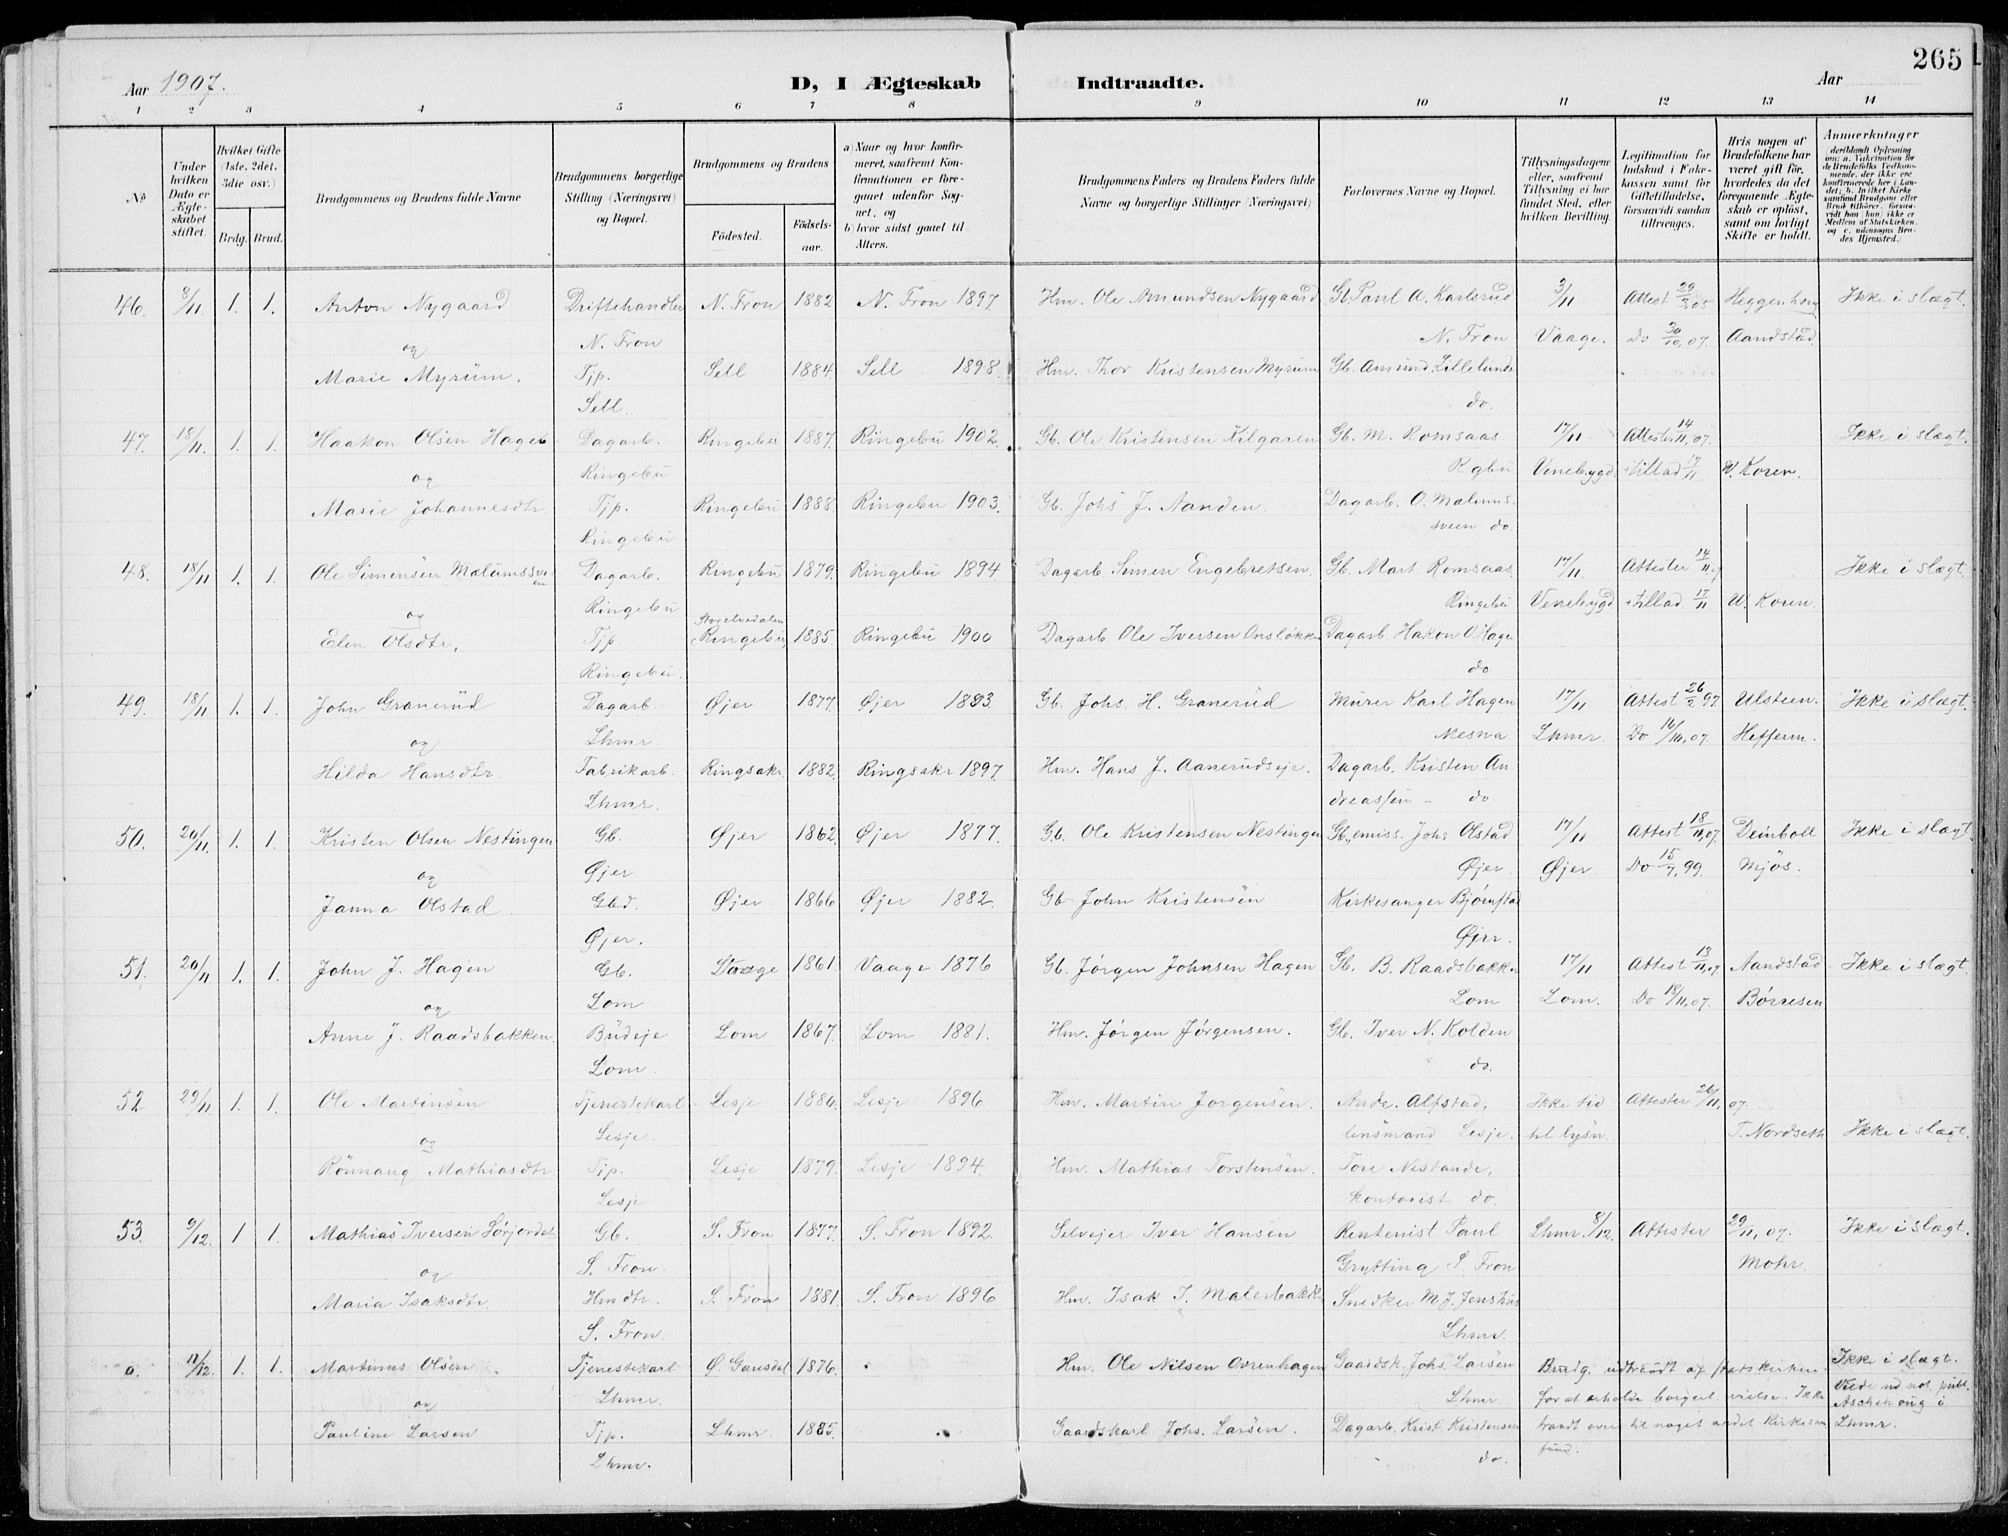 265
Aar 1907.
D, I Ægteskab Indtraadte.
Aar
1 2 3 4 5 6 7 8 9 10 11 12 13 14
No
Under hvilken Dato er Ægteskabet stiftet.
Hvilket Gifte (1ste, 2det, 3die osv.)
Brdg. Brud.
Brudgommens og Brudens fulde Navne
Brudgommens borgerlige Stilling (Næringsvei) og Bopæl.
Brudgommens og Brudens
Fødested. Fødselsaar.
a) Naar og hvor konfirmeret, saafremt Konfirmationen er foregaaet udenfor Sognet, og
b) hvor sidst gaaet til Alters.
Brudgommens Faders og Brudens Faders fulde Navne og borgerlige Stillinger (Næringsvei)
Forlovernes Navne og Bopæl.
Tillysningsdagene eller, saafremt Tillysning ei har fundet Sted, efter hvilken Bevilling.
Legitimation for Indskud i Fokekassen samt for Giftetilladelse, forsaavidt saadan tiltrænges.
Hvis nogen af Brudefolkene har været gift før, hvorledes da det foregaaende Ægteskab er opløst, samt om lovligt Skifte er holdt.
Anmerkninger
46. 8/11 1. 1. Anton Nygaard Driftehandler N. Fron 1882 N. Fron 1897. Hm. Ole Amundsen Nygaard Gb Paul A. Karlsrud 3/11 Attest 29/3 05 Heggenhoug Ikke i slægt.
og N. Fron N. Fron Vaage. Do 30/10, 07. Aandstad.
Marie Myrum. Tjp. Sell 1884. Sell 1898. Hm. Thor Kristensen Myrum Gb. Amund Lillelunde
Sell. do.
47. 18/11 1. 1. Haakon Olsen Hagen Dagarb. Ringebu 1887. Ringebu 1902. Gb. Ole Kristensen Kilgaren Gb. M. Romsaas 17/11 Attester 14/11, 07. Ikke i slægt.
og Ringebu Rgbu Venebygd +tillad 17/11 U. Koren.
Marie Johannesdtr. Tjp. Ringebu 1888. Ringebu 1903. Gb. Johs J. Aanden. Dagarb. O. Mælums-
Ringebu sveen do.
48. 18/11 1. 1. Ole Simensen Mælumsveen Dagarb. Ringebu 1879. Ringebu 1894. Dagarb Simen Engebretsen. Gb. Mart. Romsaas. 17/11. Attester 14/11, 07 Ikke i slægt.
og Ringebu Ringebu Venebygd +tillad. 17/11 U. Koren.
Elen Olsdtr. Tjp. Ringebu, 1885. Ringebu 1900 Dagarb. Ole Iversen Onsløkken Dagarb. Hakon O. Hagen
Ringebu. do.
49. 18/11 1. 1. John Granerud Dagarb. Øjer 1877. Øjer 1893. Gb. Johs. H. Granerud Murer Karl Hagen 17/11 Attest 26/2 97. Ulsteen. Ikke i slægt.
og Lhmr. Mesna Lhmr. Do 16/11, 07. Hefferm.
Hilda Hansdtr. Fabrikarb. Ringsakr. 1882. Ringsakr 1897. Hm. Hans J. Aanerudseje. Dagarb. Kristen An
Lhmr. dreassen - do
50. 20/11. 1. 1. Kristen Olsen Nestingen Gb. Øjer 1862. Øjer 1877. Gb. Ole Kristensen Nestingen Gb., emiss. Johs Olstad 17/11 Attest 18/11, 07. Deinboll Ikke i slægt.
og Øjer Øjer. Øjer Do 15/7, 99. Mjøs.
Janna Olstad Gbd. Øjer 1866 Øjer 1882. Gb John Kristensen Kirkesanger Bjørnstad
Øjer. Øjer.
51. 20/11 1. 1. John J. Hagen Gb. Vaage 1861. Vaage 1876 Gb. Jørgen Johnsen Hagen Gb. B. Raadsbakken 17/11 Attest 13/11, 07 Aandstad Ikke i slægt.
og Lom Lom Lom. Do 18/11, 07. Børresen
Anne J. Raadsbakken. Budeje Lom 1867. Lom 1881. Hm. Jørgen Jørgensen. Gb. Iver N. Kolden
Lom. do.
52 29/11 1. 1. Ole Martinsen Tjenestekarl Lesje 1880. Lesje 1896 Hm. Martin Jørgensen. Andr. Alfstad, Ikke tid Attester 26/11, 07.
og Lesje. lensmand Lesje. til lysn. T. Nordseth Ikke i slægt.
Rønnaug Mathiasdtr Tjp. Lesje 1879. Lesje 1894. Hm. Mathias Torstensen. Tore Nestande,
Lesje kontorist do.
53. 9/12. 1 1. Mathias Iversen Sørjordet Gb. S. Fron 1877. S. Fron 1892. Selvejer Iver Hansen Rentenist Paul Lhmr. 8/12. Attester 29/11, 07. Ikke i slægt.
og S. Fron. Grytting S. Fron Mohr.
Maria Isaksdtr. Hmdtr. S. Fron 1881. S. Fron 1896 Hm. Isak I. Malerbakk. Snedker M. J. Jenshus
S. Fron. Lhmr.
o. 17/12. 1. 1. Martinus Olsen Tjenestekarl Ø. Gausdal 1876. Hm. Ole Nilsen Ovrenhagen Gaardsk. Johs. Larsen Brudg. udtraadt af statskirken Ikke i slægt.
og Lhmr. Lhmr. for at erholde borgerl. vielse. Ikke Viede ved not. publ.
Pauline Larsen Tjp. Lhmr. 1885. Gaardskarl Johs. Larsen. Dagarb. Krist. Kristensen traadt over til noget andet kirkesam Aschehoug i Lhmr.
Lhmr. do. fund.